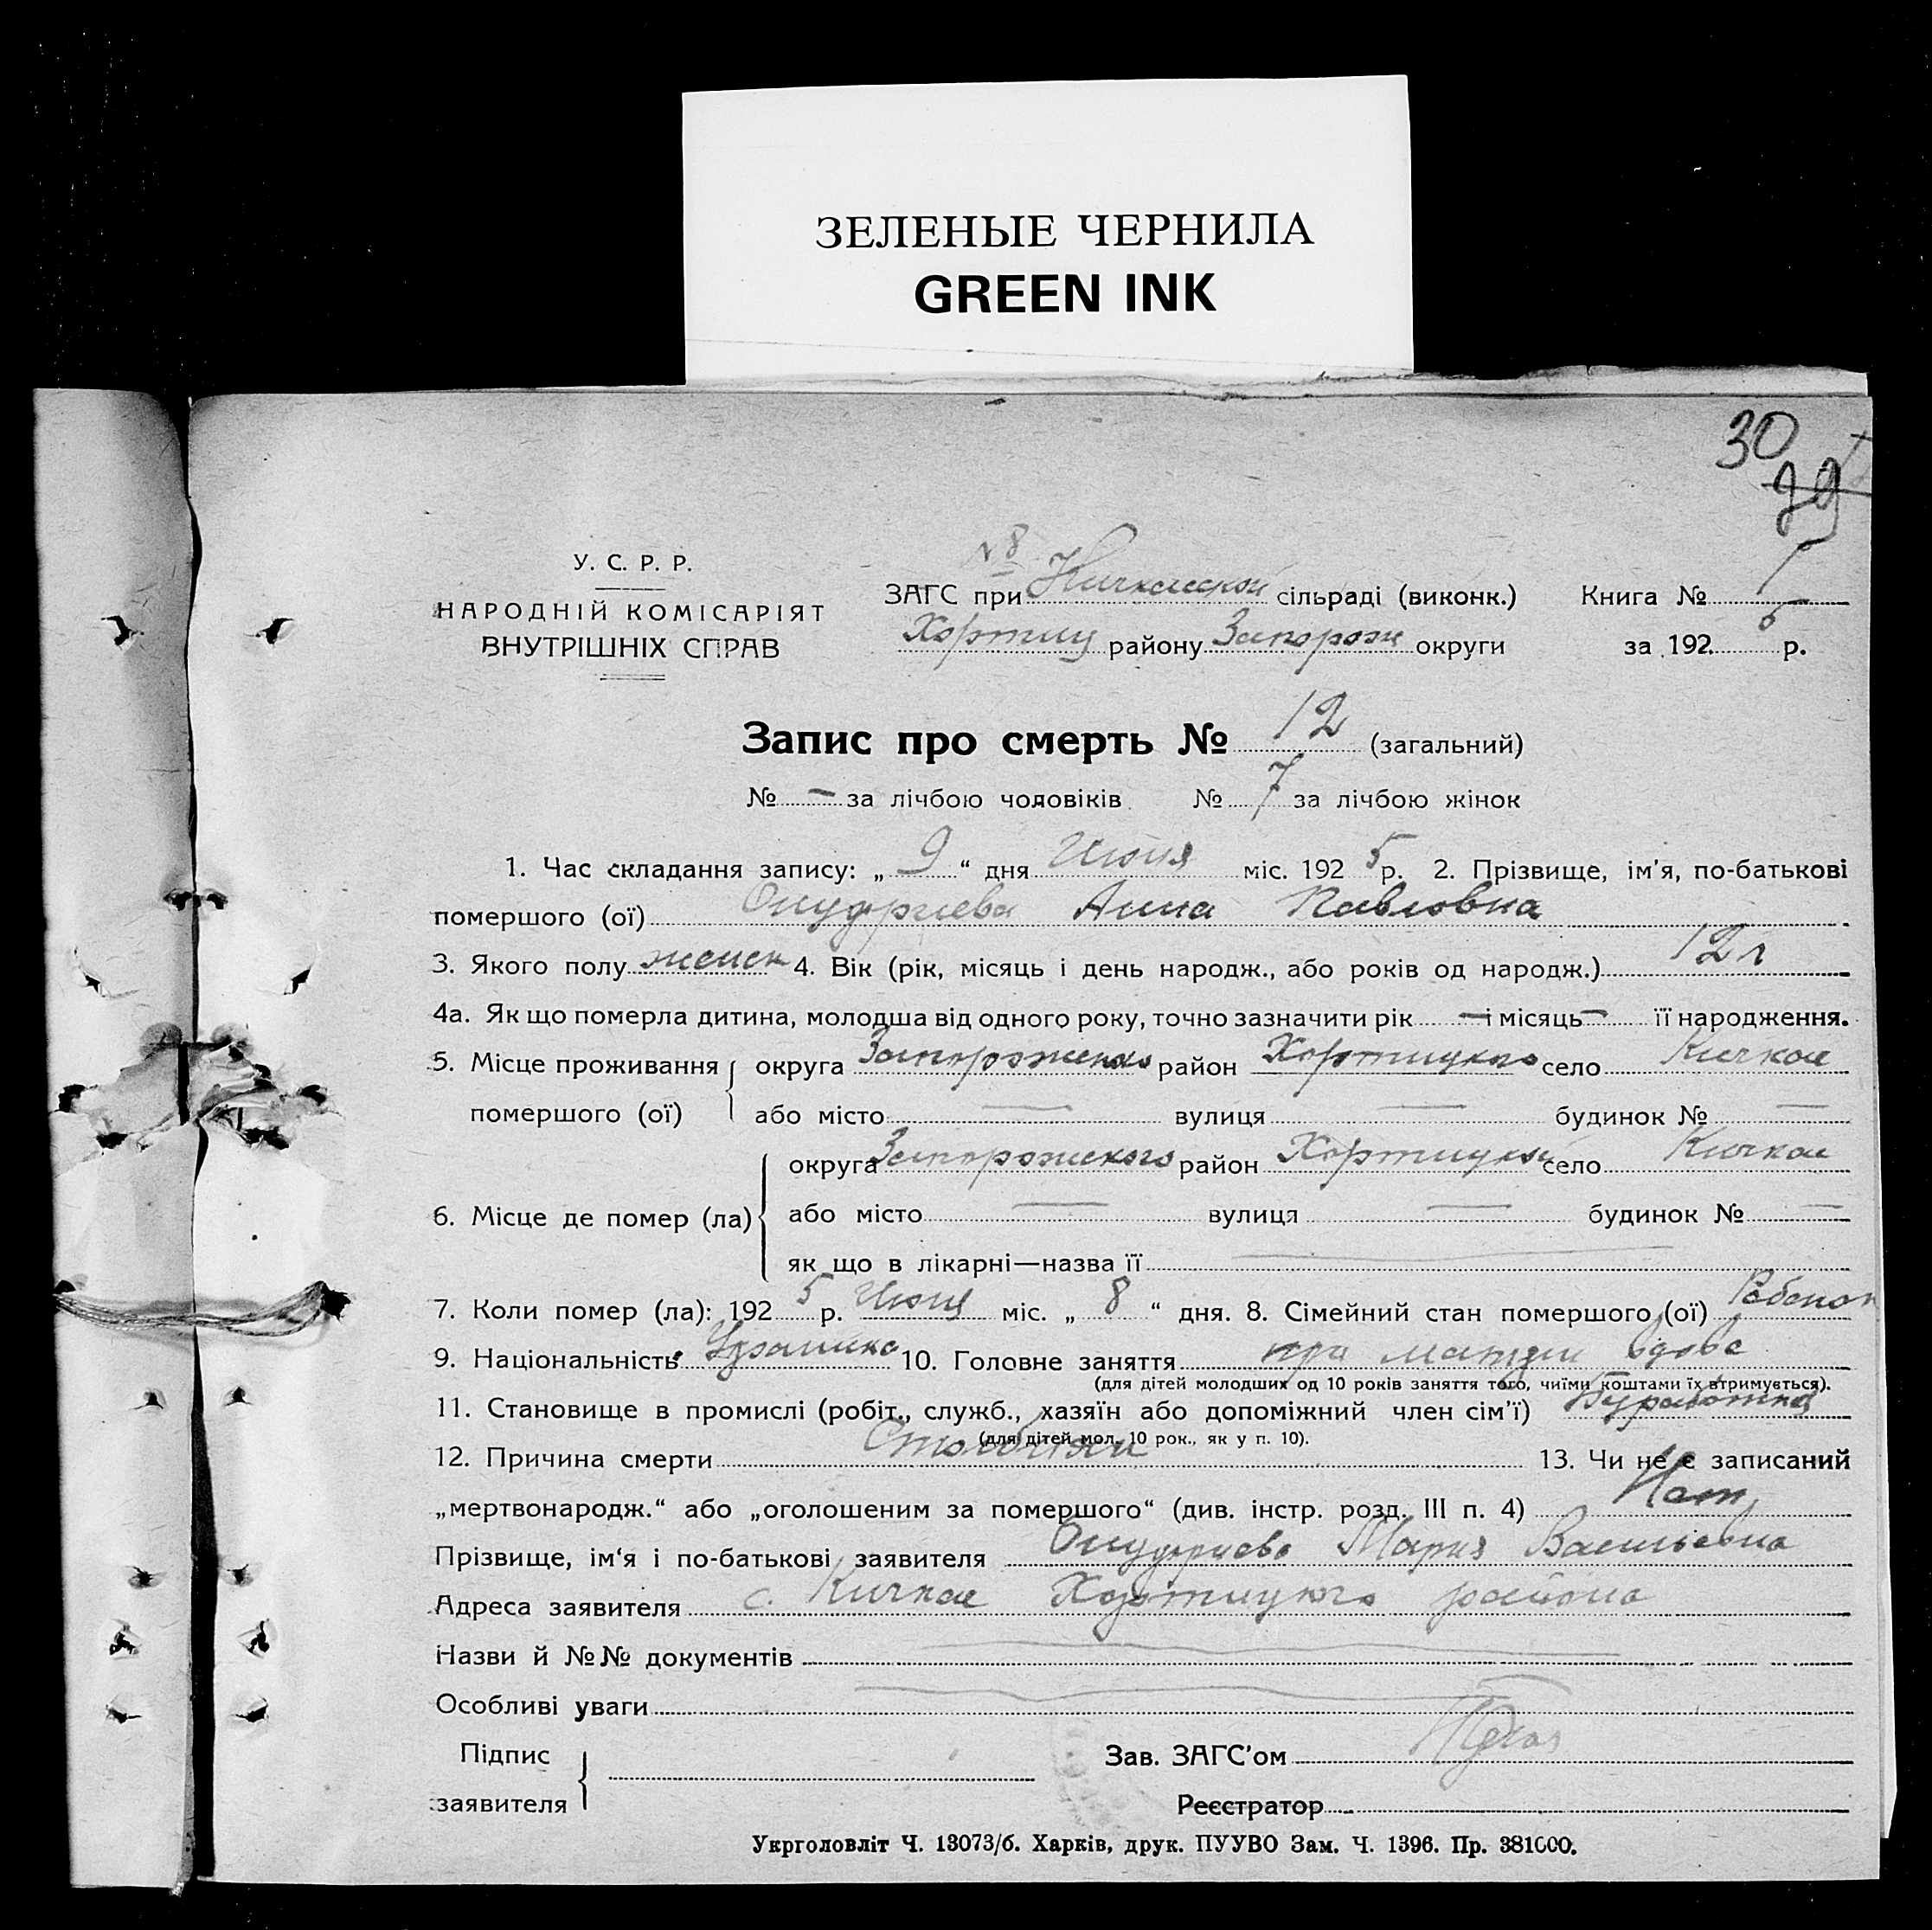 ЗЕЛЕНЫЕ ЧЕРНИЛА
GREEN INK
30
29
У. С. Р. Р.
НАРОДНІЙ КОМІСАРІЯТ
ВНУТРІШНІХ СПРАВ
№ 8
ЗАГС при Кичкасской сільраді (виконк.) Книга № 1
Хортиц району Запорож округи за 192 5 р.
Запис про смерть № 12 (загальний)
№ — за лічбою чоловіків № 7 за лічбою жінок
1. Час складання запису: „ 9 “ дня Июня міс. 192 5 р. 2. Прізвище, ім'я, по-батькові
помершого (ої) Онуфриева Анна Павловна
3. Якого полу женск 4. Вік (рік, місяць і день народж., або років од народж.) 12 л
4а. Як що померла дитина, молодша від одного року, точно зазначити рік — і місяць — її народження.
5. Місце проживання округа Запорожского район Хортицкого село Кичкас
помершого (ої) або місто — вулиця — будинок № —
округа Запорожского район Хортицкого село Кичкас
6. Місце де помер (ла) або місто — вулиця — будинок № —
як що в лікарні—назва її
7. Коли помер (ла): 192 5 р. Июня міс. „ 8 “ дня. 8. Сімейний стан помершого (ої) Ребенок
9. Національність Украинка 10. Головне заняття при матери вдове
(для дітей молодших од 10 років заняття того, чиїми коштами їх втримується).
11. Становище в промислі (робіт., служб., хазяїн або допоміжний член сім'ї)
(для дітей мол. 10 рок., як у п. 10).
12. Причина смерти Столбняк 13. Чи не є записаний
„мертвонародж.“ або „оголошеним за помершого“ (див. інстр. розд. III п. 4) Нет
Прізвище, ім'я і по-батькові заявителя Онуфриева Мария Васильевна
Адреса заявителя с. Кичкас Хортицкого района
Назви й №№ документів
Особливі уваги
Підпис
заявителя
Зав. ЗАГС'ом
Реєстратор
Укрголовліт Ч. 13073/б. Харків, друк. ПУУВО Зам. Ч. 1396. Пр. 381000.